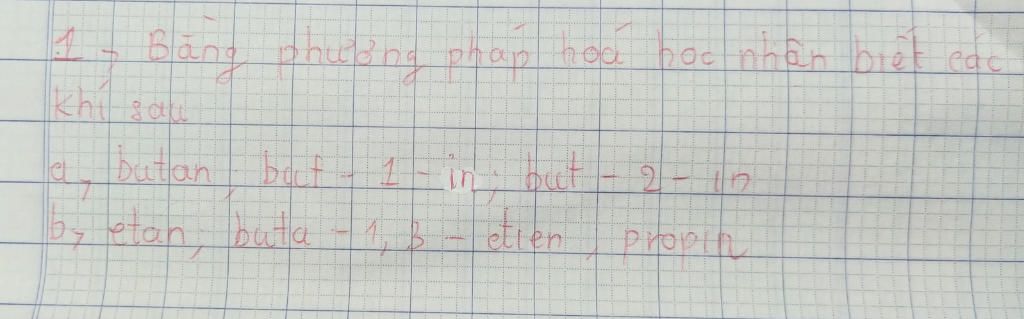 1, Bằng phương pháp hoá học nhận biết các
khí sau
a, butan, but - 1 - in; but - 2 - in
b, etan, buta - 1, 3 - etien, propin